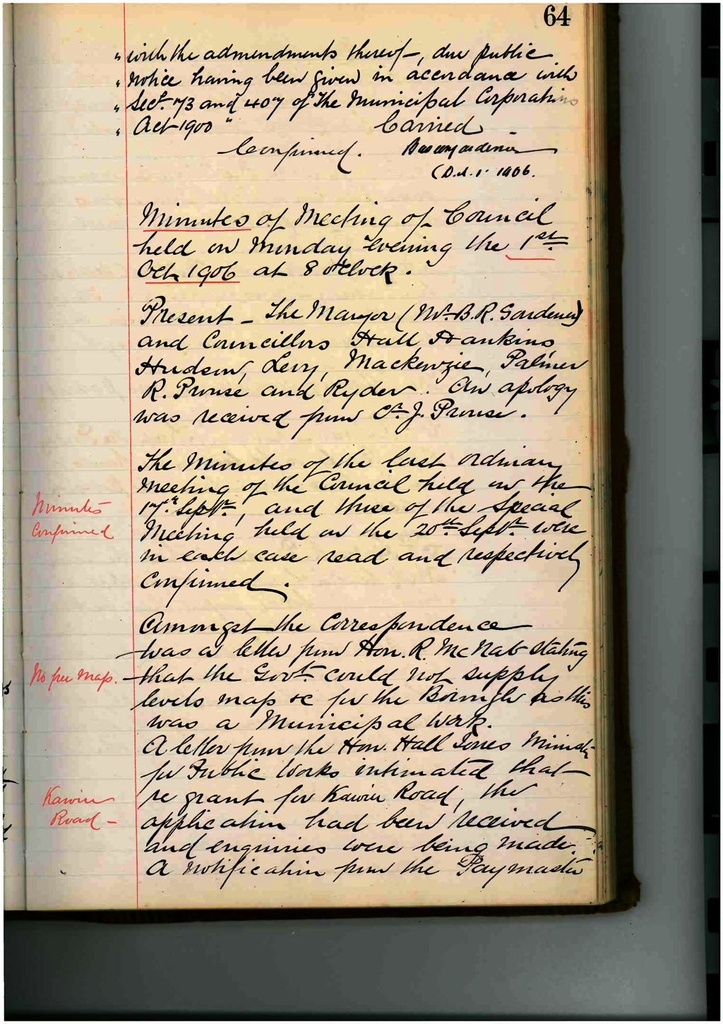 64
" with the admendments thereof, due public
" notice having been given in accordance with
" Sects 73 and 407 of The Municipal Corporations
" Act 1900 " Carried
Confirmed.
1906.
Minutes of Meeting of Council
held on Monday Evening the 1st
Oct 1906 at 8 oclock.
Present - The Mayor (Mr B.R. Gardener)
and Councillors Hall Hankins
Hudson, Levy, Mackenzie, Palmer
R. Prouse and Ryder. An apology
was received from Cr J. Prouse.
The Minutes of the last ordinary
Minutes
Confirmed
Meeting of the Council held on the
17th Septr, and those of the Special
Meeting held on the 20th Septr were
in each case read and respectively
confirmed.
Amongst the Correspondence
was a letter from Hon. R. McNab stating
No free map.
that the Govt could not supply
levels map &c for the Borough as this
was a Municipal work.
A letter from the Hon. Hall Jones Minister
for Public Works intimated that
Kawiu
Road -
re grant for Kawiu Road, the
application had been received
and enquiries were being made.
A notification from the Paymaster